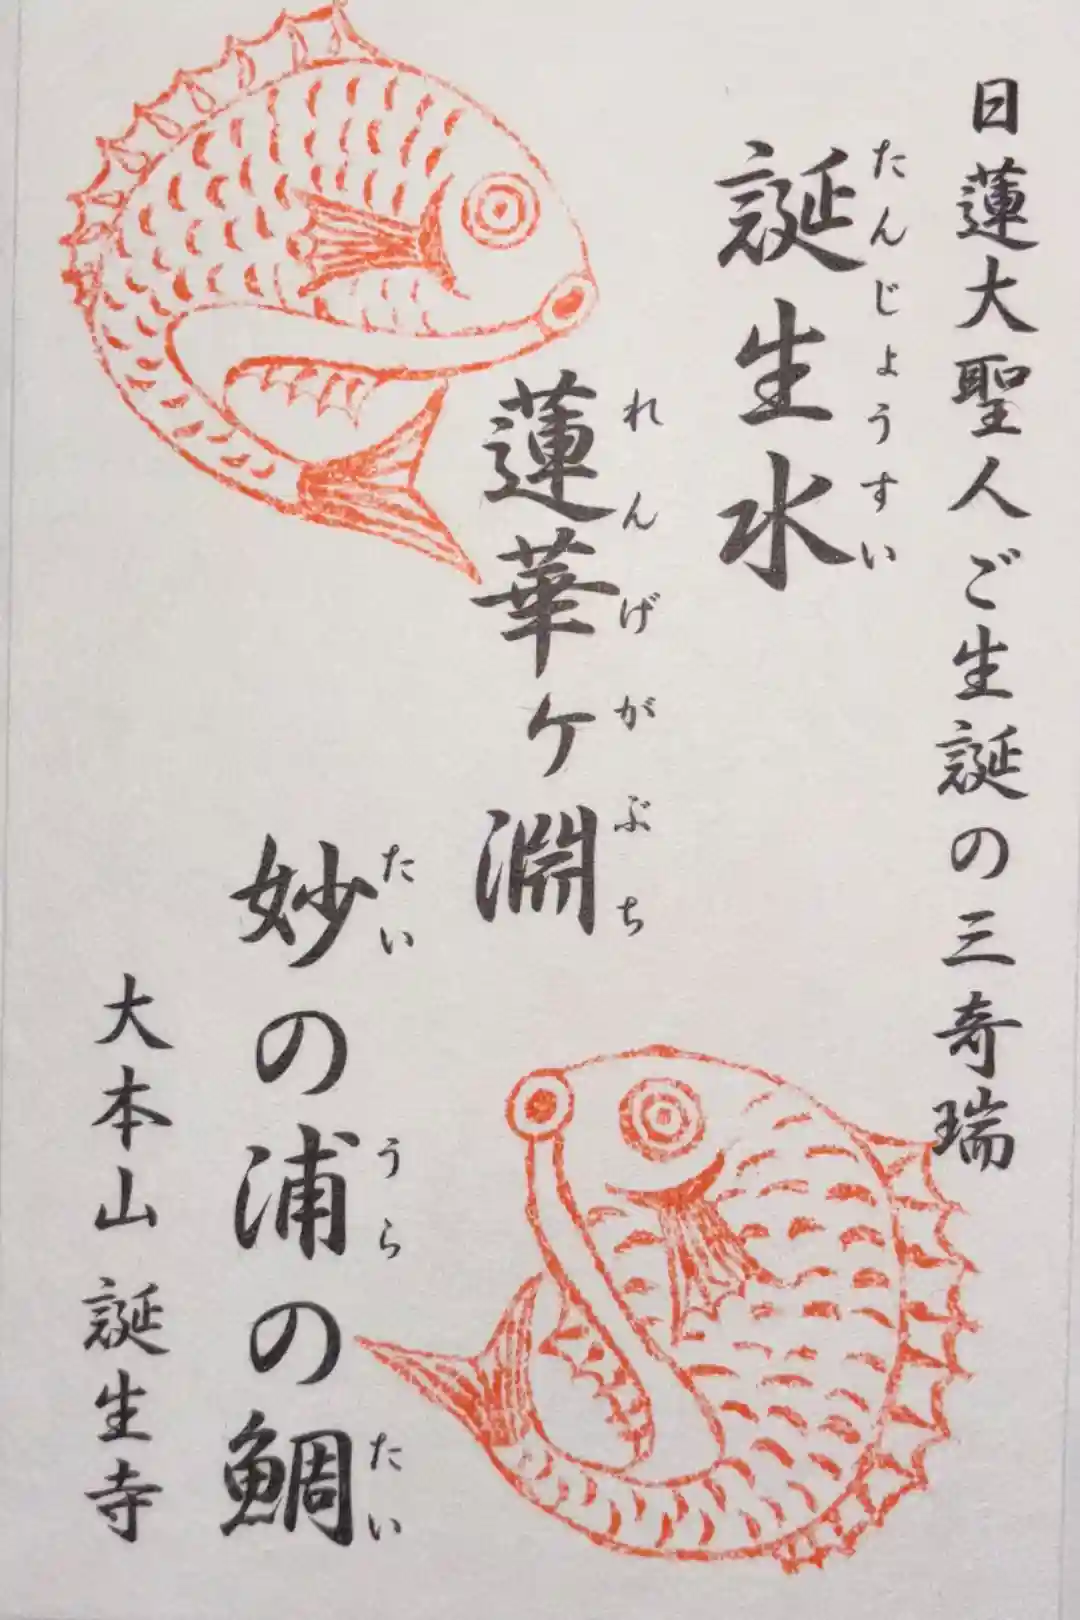 日蓮大聖人ご生誕の三奇瑞
誕生水
たんじょうすい
蓮華ケ淵
れんげがぶち
妙の浦の鯛
たい うら たい
大本山 誕生寺